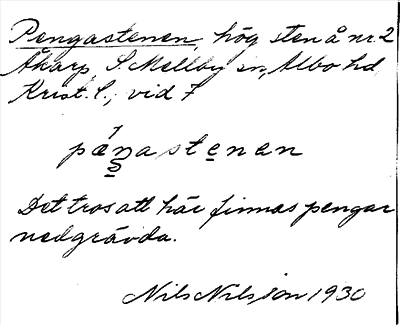 Pengastenen, hög sten å nr. 2
Åkarp, S. Mellby sn, Albo hd
Krist. l., vid 7
pæ̀ŋastenen
Det tros att här finnas pengar
nedgrävda.
Nils Nilsson 1930